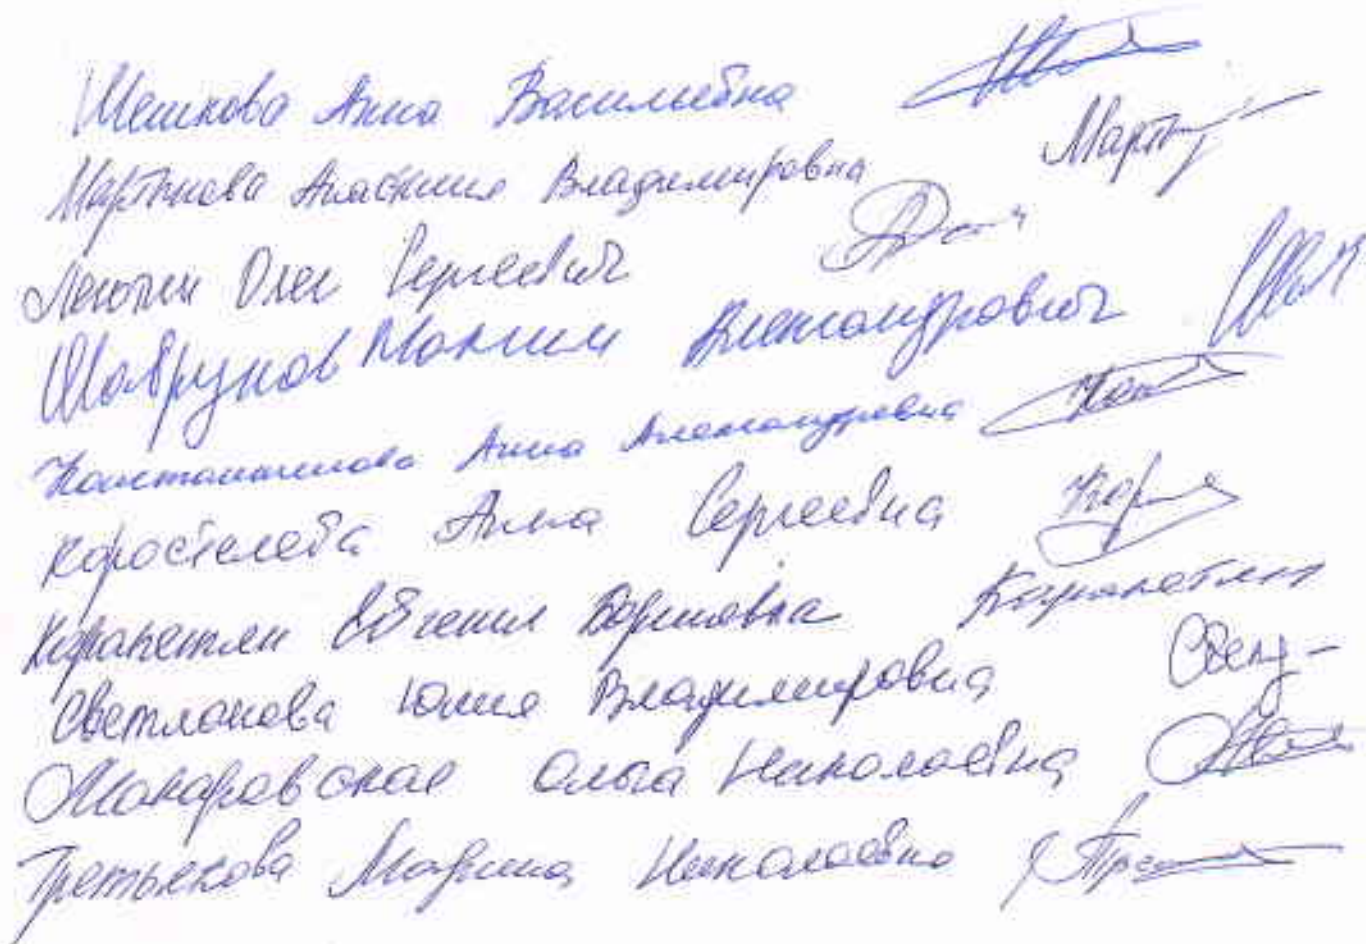 Мешкова Анна Васильевна
Мартынова Анастасия Владимировна Март
Сергеевич
Шаврунов Максим Александрович
Константинова Анна Александровна Кон
Коростелева Анна Сергеевна Кор
Карапетян Евгения Борисовна Карапетян
Светлакова Юлия Владимировна
Макаровская Ольга Николаевна
Третьякова Марина Николаевна